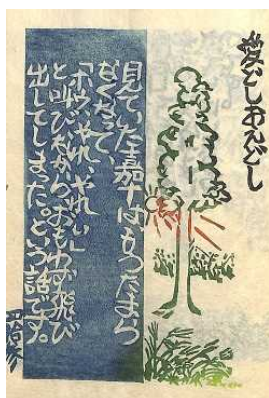 愛どしおえどし
見ていた嘉十はもうたまら
なくなって、
「ホウ、やれ、やれい」
と叫びながらおもわず飛び
出してしまった。という話です。